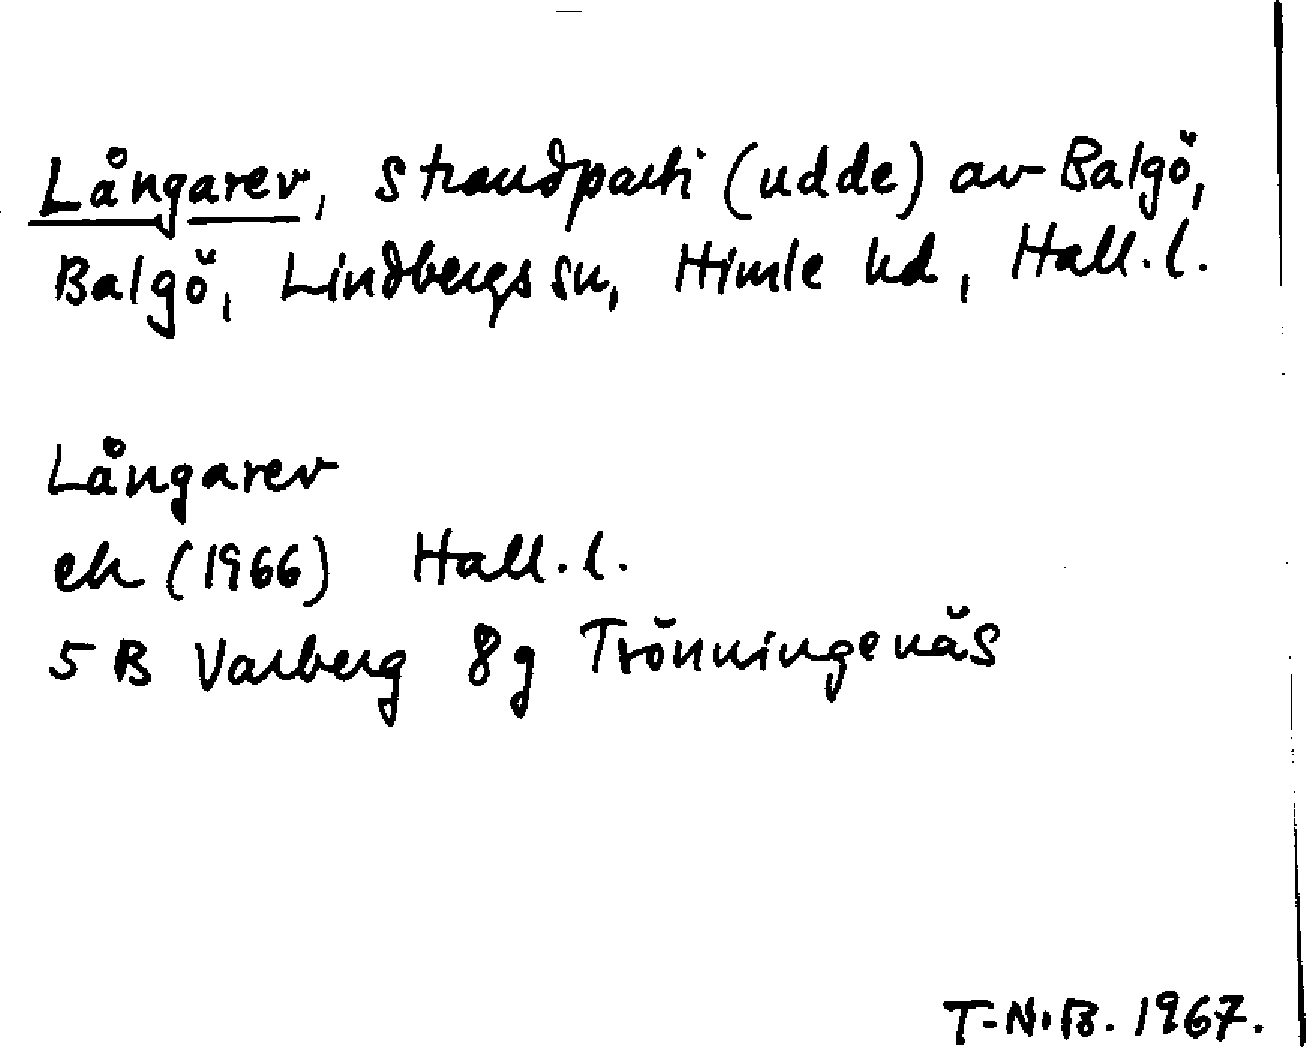 Långarev, strandparti (udde) av Balgö,
Balgö, Lindbergs sn, Himle hd, Hall. l.
Långarev
ek (1966) Hall. l.
5 B Varberg 8g Trönningenäs
T-N.B. 1967.